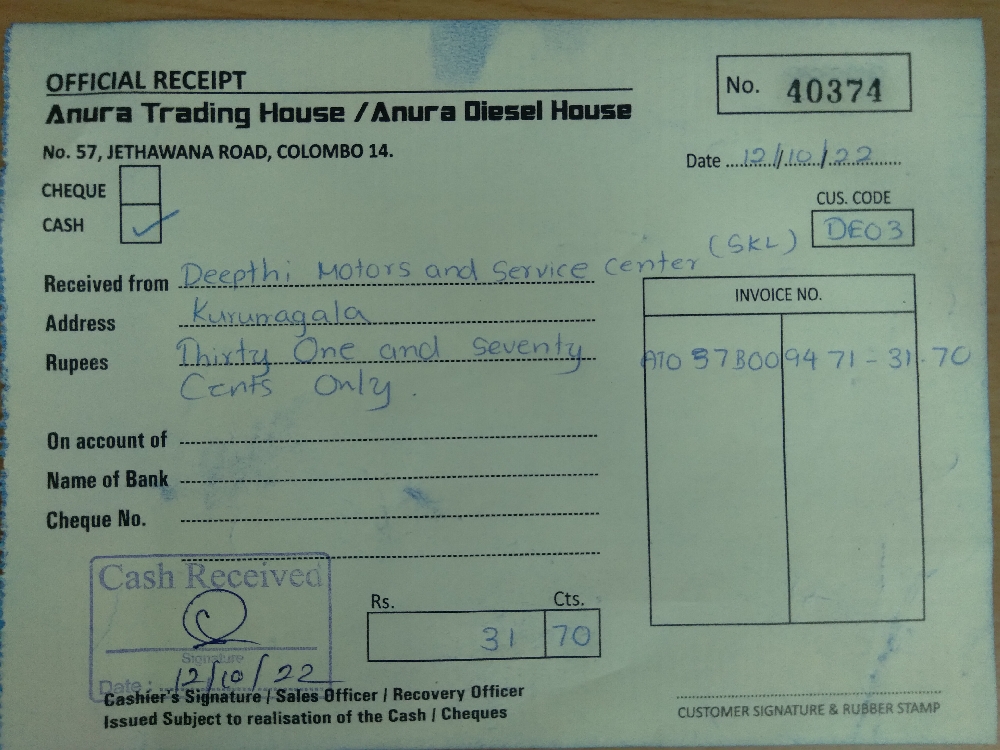 OFFICIAL RECEIPT
No. 40374
Anura Trading House / Anura Diesel House
No. 57, JETHAWANA ROAD, COLOMBO 14.
Date 12/10/22
CHEQUE
CASH ✓
CUS. CODE
DE03
(SKL)
Received from Deepthi Motors and Service Center
Address Kurunagala
INVOICE NO.
Rupees Thirty One and Seventy
Cents Only.
ATO 57B0094 71 - 31-70
On account of
Name of Bank
Cheque No.
Cash Received
Signature
Date : 12/10/22
Rs. Cts.
31 70
Cashier's Signature / Sales Officer / Recovery Officer
Issued Subject to realisation of the Cash / Cheques
CUSTOMER SIGNATURE & RUBBER STAMP